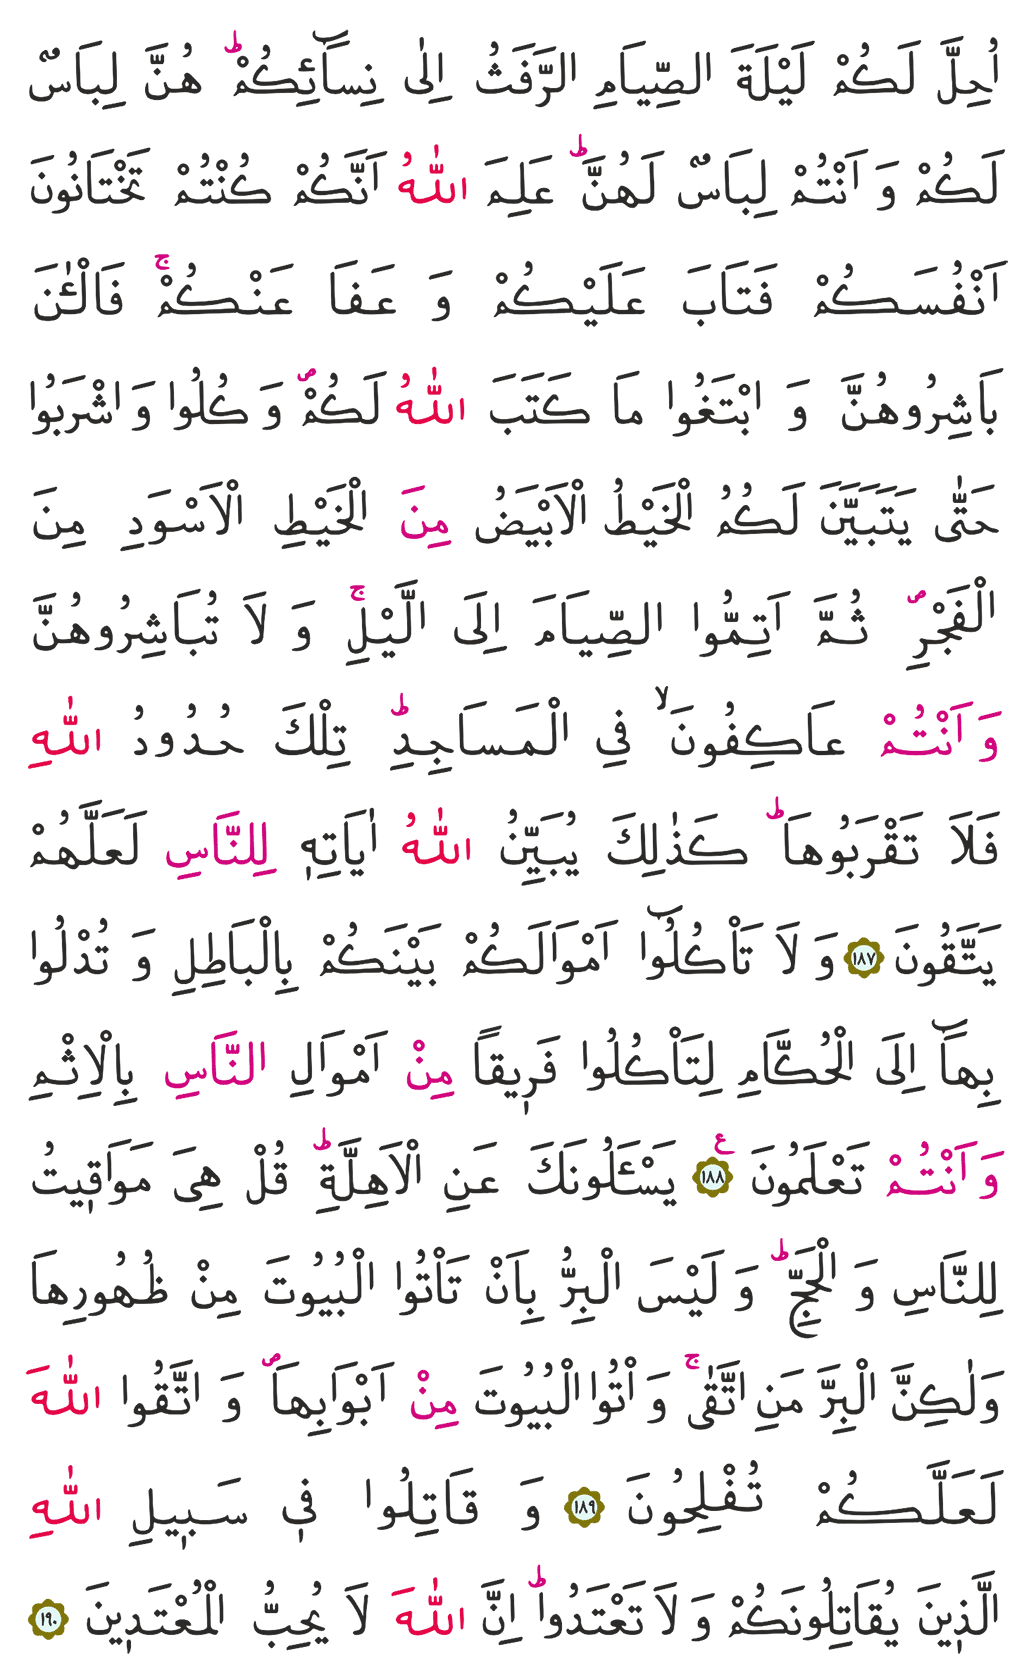 اُحِلَّ لَكُمْ لَيْلَةَ الصِّيَامِ الرَّفَثُ اِلٰى نِسَآئِكُمْ ؕ هُنَّ لِبَاسٌ
لَكُمْ وَ اَنْتُمْ لِبَاسٌ لَهُنَّ ؕ عَلِمَ اللّٰهُ اَنَّكُمْ كُنْتُمْ تَخْتَانُونَ
اَنْفُسَكُمْ فَتَابَ عَلَيْكُمْ وَ عَفَا عَنْكُمْ ۚ فَالْـٰٔنَ
بَاشِرُوهُنَّ وَ ابْتَغُوا مَا كَتَبَ اللّٰهُ لَكُمْ ۖ وَ كُلُوا وَ اشْرَبُوا
حَتّٰى يَتَبَيَّنَ لَكُمُ الْخَيْطُ الْاَبْيَضُ مِنَ الْخَيْطِ الْاَسْوَدِ مِنَ
الْفَجْرِ ۖ ثُمَّ اَتِمُّوا الصِّيَامَ اِلَى الَّيْلِ ۚ وَ لَا تُبَاشِرُوهُنَّ
وَ اَنْتُمْ عَاكِفُونَ ۙ فِي الْمَسَاجِدِ ؕ تِلْكَ حُدُودُ اللّٰهِ
فَلَا تَقْرَبُوهَا ؕ كَذٰلِكَ يُبَيِّنُ اللّٰهُ اٰيَاتِهٖ لِلنَّاسِ لَعَلَّهُمْ
يَتَّقُونَ ﴿١٨٧﴾ وَ لَا تَاْكُلُوٓا اَمْوَالَكُمْ بَيْنَكُمْ بِالْبَاطِلِ وَ تُدْلُوا
بِهَآ اِلَى الْحُكَّامِ لِتَاْكُلُوا فَرٖيقًا مِنْ اَمْوَالِ النَّاسِ بِالْاِثْمِ
وَ اَنْتُمْ تَعْلَمُونَ ﴿١٨٨﴾ ع يَسْـَٔلُونَكَ عَنِ الْاَهِلَّةِ ؕ قُلْ هِيَ مَوَاقٖيتُ
لِلنَّاسِ وَ الْحَجِّ ؕ وَ لَيْسَ الْبِرُّ بِاَنْ تَاْتُوا الْبُيُوتَ مِنْ ظُهُورِهَا
وَلٰكِنَّ الْبِرَّ مَنِ اتَّقٰى ۚ وَ اْتُوا الْبُيُوتَ مِنْ اَبْوَابِهَا ۖ وَ اتَّقُوا اللّٰهَ
لَعَلَّكُمْ تُفْلِحُونَ ﴿١٨٩﴾ وَ قَاتِلُوا فٖي سَبٖيلِ اللّٰهِ
الَّذٖينَ يُقَاتِلُونَكُمْ وَ لَا تَعْتَدُوا ؕ اِنَّ اللّٰهَ لَا يُحِبُّ الْمُعْتَدٖينَ ﴿١٩٠﴾